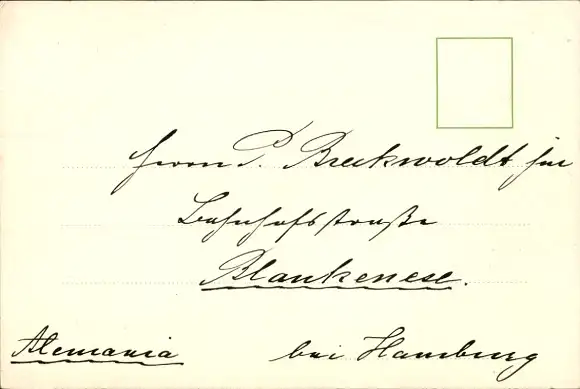 Herrn P. Breckwoldt jun
Bahnhofstraße
Blankenese.
Alemania bei Hamburg